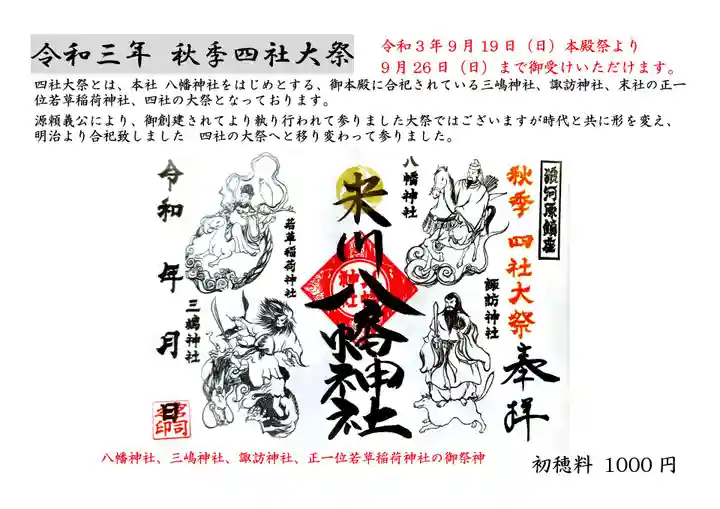 令和三年 秋季四社大祭
令和3年9月19日(日)本殿祭より
9月26日(日)まで御受けいただけます。
四社大祭とは、本社 八幡神社をはじめとする、御本殿に合祀されている三嶋神社、諏訪神社、末社の正一
位若草稲荷神社、四社の大祭となっております。
源頼義公により、御創建されてより執り行われて参りました大祭ではございますが時代と共に形を変え、
明治より合祀致しました 四社の大祭へと移り変わって参りました。
秋季 四社大祭
奉拝
八幡神社
諏訪神社
八幡神社
若草稲荷神社
三嶋神社
令和 年 月 日
八幡神社、三嶋神社、諏訪神社、正一位若草稲荷神社の御祭神
初穂料 1000円